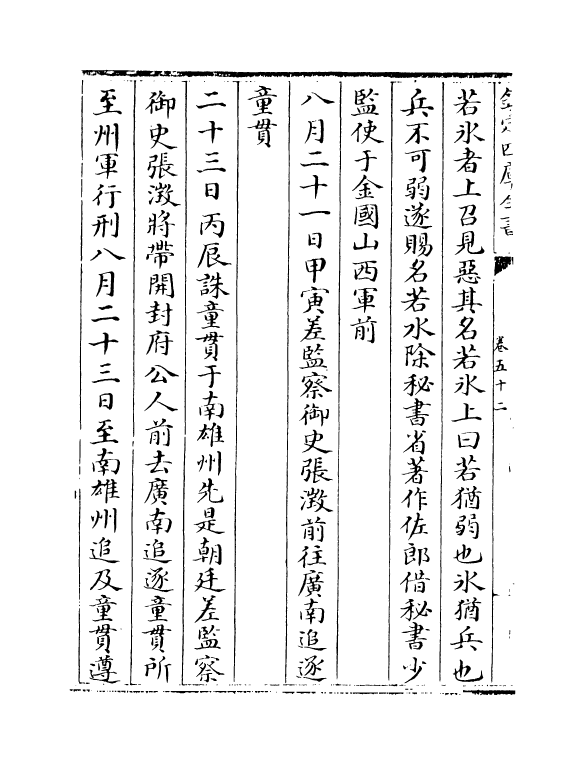 欽定四庫全書
卷五十二
若氷者上召見惡其名若氷上曰若猶弱也氷猶兵也
兵不可弱遂賜名若水除秘書省著作佐郎借秘書少
監使于金國山西軍前
八月二十一日甲寅差監察御史張澂前往廣南追逐
童貫
二十三日丙辰誅童貫于南雄州先是朝廷差監察
御史張澂將帶開封府公人前去廣南追逐童貫所
至州軍行刑八月二十三日至南雄州追及童貫遵